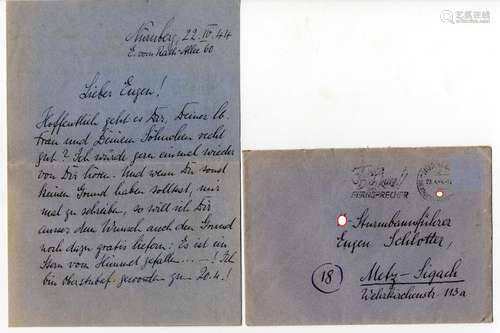 Nürnberg, 22.IV.44
E. vom Rath-Allee 60
Lieber Eugen!
Hoffentlich geht es Dir, Deiner lb.
Frau und Deinem Söhnchen recht
gut? Ich würde gern einmal wieder
von Dir hören. Und wenn Du sonst
keinen Grund haben solltest, mir
mal zu schreiben, so will ich Dir
ausser dem Wunsch auch den Grund
noch dazu gratis liefern: Es ist ein
Stern vom Himmel gefallen --! Ich
bin Oberstubaf. geworden zum 20.4.!
FERNSPRECHER
Sturmbannführer
Eugen Schlotter,
(18)
Metz-Sigach
Wehrkirchenstr. 113a